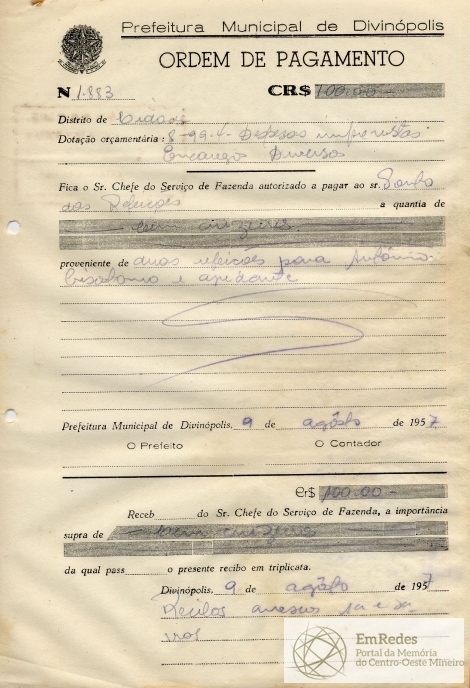 Prefeitura Municipal de Divinópolis
ORDEM DE PAGAMENTO
N 1.883 CR$ 100,00
Distrito de Cidade
Dotação orçamentária: 8-99-4- Despesas imprevistas
Encargos Diversos
Fica o Sr. Chefe do Serviço de Fazenda autorizado a pagar ao sr.
das Refeições a quantia de
cem cruzeiros
proveniente de duas refeições para Antônio
e ajudante
Prefeitura Municipal de Divinópolis, 9 de agôsto de 1957
O Prefeito O Contador
Cr$ 100,00-
Receb do Sr. Chefe do Serviço de Fazenda, a importância
supra de cem cruzeiros
da qual pass o presente recibo em triplicata.
Divinópolis, 9 de agôsto de 1957
Recibos anexos
EmRedes
Portal da Memória
do Centro-Oeste Mineiro